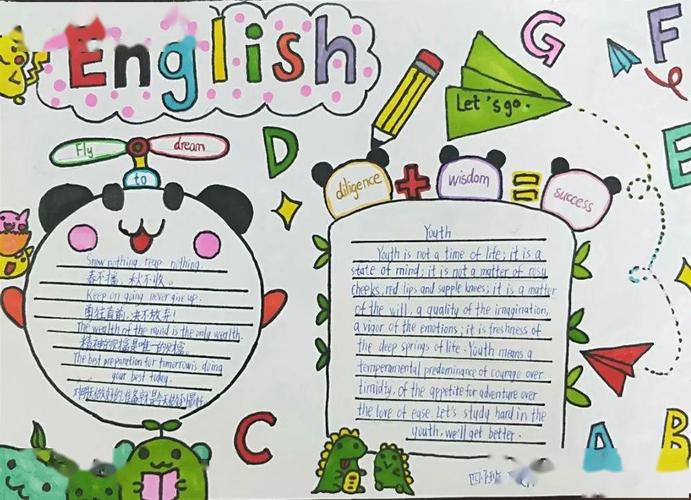 English
Let's go.
G
F
E
D
C
A
B
Fly
to
dream
Snow nothing, reap nothing.
春不播，秋不收。
Keep on going never give up.
勇往直前，决不放弃！
The wealth of the mind is the only wealth.
精神的财富是唯一的财富。
The best preparation for tomorrow is doing
your best today.
diligence + wisdom = success
Youth
Youth is not a time of life; it is a
state of mind; it is not a matter of rosy
cheeks, red lips and supple knees; it is a matter
of the will, a quality of the imagination,
a vigor of the emotions; it is freshness of
the deep springs of life. Youth means a
temperamental predominance of courage over
timidty, of the appetite for adventure over
the love of ease. Let's study hard in the
youth, we'll get better.